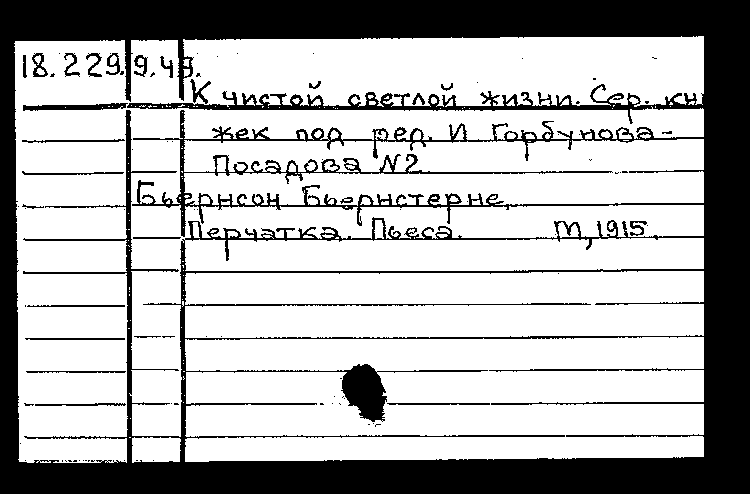 18.229.9.49.
К чистой светлой жизни. Сер. кни
жек под ред. И Горбунова-
Посадова N2
Бьернсон Бьернстерне.
Перчатка. Пьеса. М, 1915.